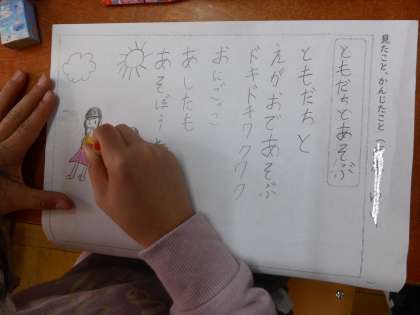 見たこと、かんじたこと
ともだちとあそぶ
ともだちと
えがおであそぶ
ドキドキワクワク
おにごっこ
あしたも
あそぼうと